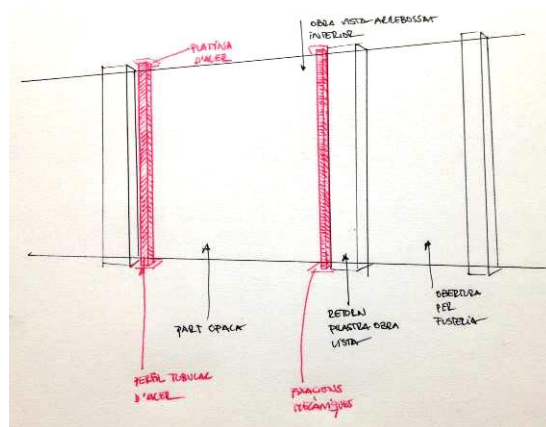 PLATINA
D'ACER
OBRA VISTA ARREBOSSAT
INTERIOR
PART OPACA
RETORN
PILASTRA OBRA
VISTA
OBERTURA
PER
FUSTERIA
PERFIL TUBULAR
D'ACER
FIXACIONS
MECÀNIQUES